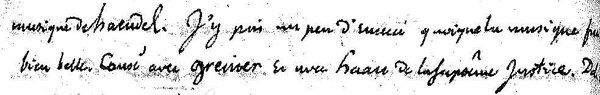 musique de haendel. J'y pris un peu d'ennui quoique la musique fu
bien belle. Causé avec greiner et avec haau de la suprême Justice. D